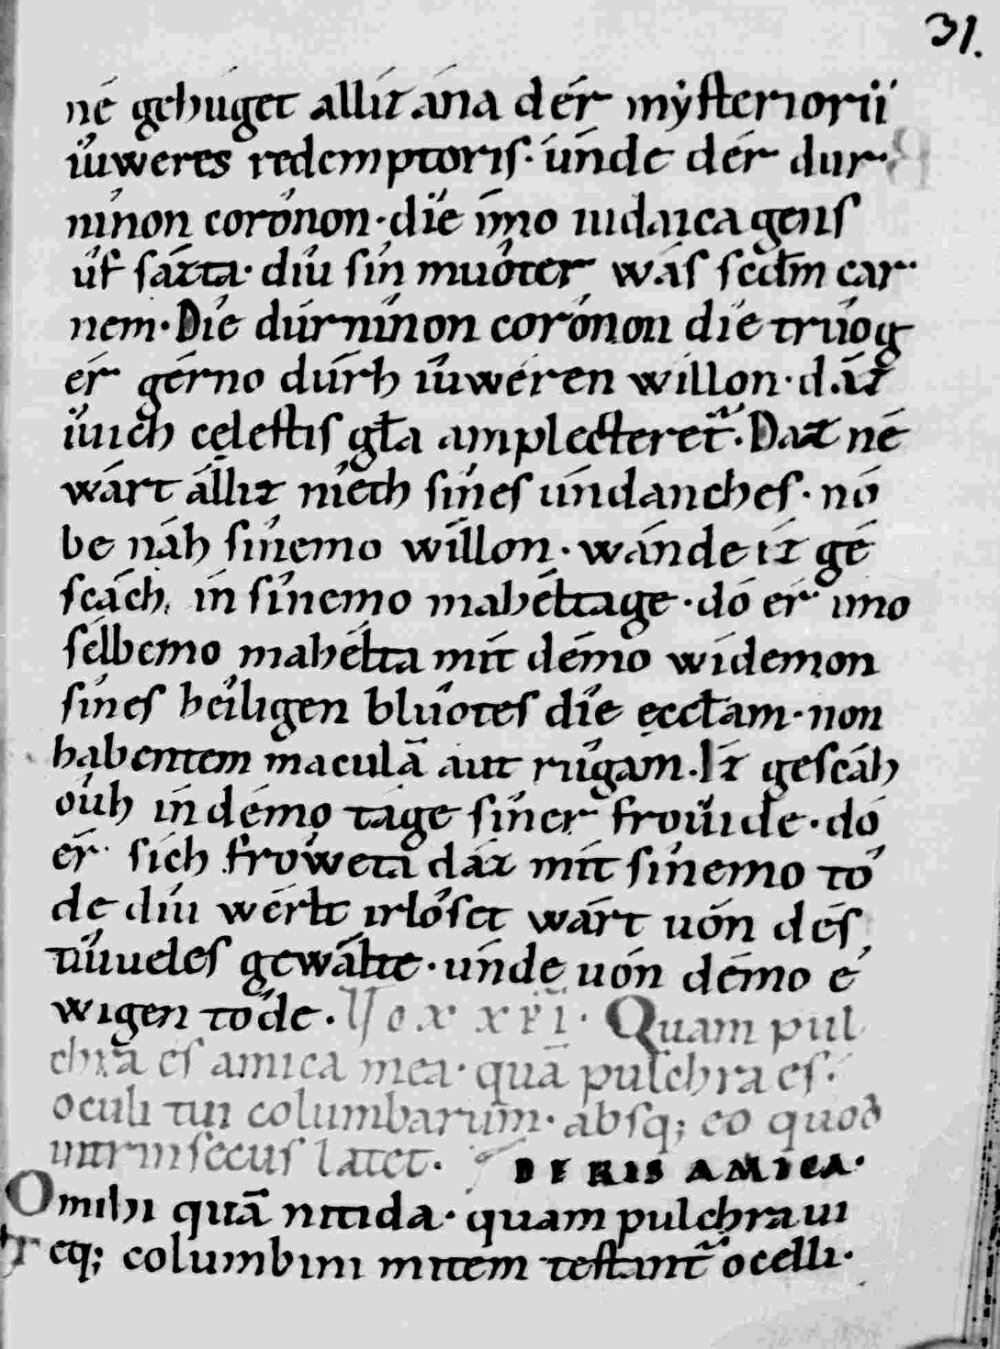 31.
né gehúget állíz ána dér mẏsteriorū
íuweres redemptoris· únde dér dur·
nínon corónon· díe ímo iudaica gens
ûf sázta· díu sín muóter wás scdm̄ car·
nem· Díe dúrnínon corónon díe trúog
ér gérno dúrh íuwéren wíllon· dáz
íuuich cęlestis gła amplecteret᷑· Daz né
wárt álliz níeth sínes úndanches· nó
be náh sínemo wíllon· wánde íz gé
scách, ín sínemo mahéltage· dó ér imo
sélbemo mahélta mít démo wídemon
sínes héiligen blúotes díe ęccłam· non
habentem maculā aut rúgam. Iz gescáh
oúh ín démo táge síner froúuide· dó
ér sích froẃeta dáz mít sínemo tó
de díu wérlt irlóset wárt uón dés
tíuueles gewálte· únde uón démo é
wigen tóde. Uox xp̄i· Quam pul
chra es amica mea· quā pulchra es·
oculi tui columbarum· absq; eo quod
intrinsecus latet·
ERIS AMICA·
O mihi quā nitida· quam pulchra ui
eq; columbini mitem testant᷑ ocelli·